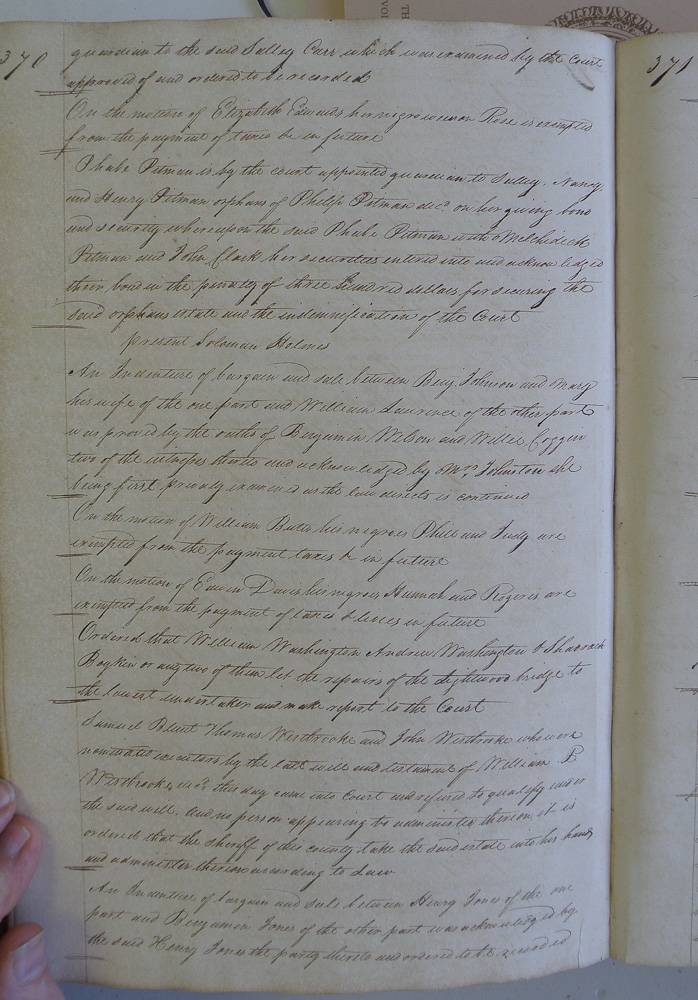 370
guardian to the said Salley Carr which was examined by the Court
approved of and ordered to be recorded
On the motion of Elizabeth Edwards her negro woman Rose is exempted
from the payment of taxes &c in future
Phebe Pitman is by the court appointed guardian to Salley, Nancy,
and Henry Pitman orphans of Philip Pitman decd on her giving bond
and security whereupon the said Phebe Pitman with
Pitman and John Clark her securities entered into and acknowledged
their bond in the penalty of three hundred dollars for securing the
said orphans estate and the indemnification of the Court
present Soloman Holmes
An Indenture of bargain and sale between Benj Johnson and Mary
his wife of the one part and William Laurence of the other part
was proved by the oaths of Benjamin Wilson and Willie
two of the witnesses thereto and acknowledged by Mrs Johnston she
being first privily examined as the law directs is continued
On the motion of William his negroes Phill and Judy are
exempted from the payment taxes &c in future
On the motion of Edwin Davis his negroes Hannah and are
exempted from the payment of taxes & levies in future
Ordered that William Washington Andrew Washington &
Boykin or any two of them let the repairs of the Lightwood bridge to
the lowest undertaker and make report to the Court
Samuel Blunt Thomas Westbrooke and John Westbrooke who were
nominated executors by the last will and testament of William B.
Westbrooke, decd this day came into Court and refused to qualify under
the said will. And no person appearing to administer thereon it is
ordered that the sheriff of this county take the said estate into his hands
and administer thereon according to Law
An Indenture of bargain and sale between Henry Jones of the one
part and Benjamin Jones of the other part was acknowledged by
the said Henry Jones the party thereto and ordered to be recorded
371
TH
VOI